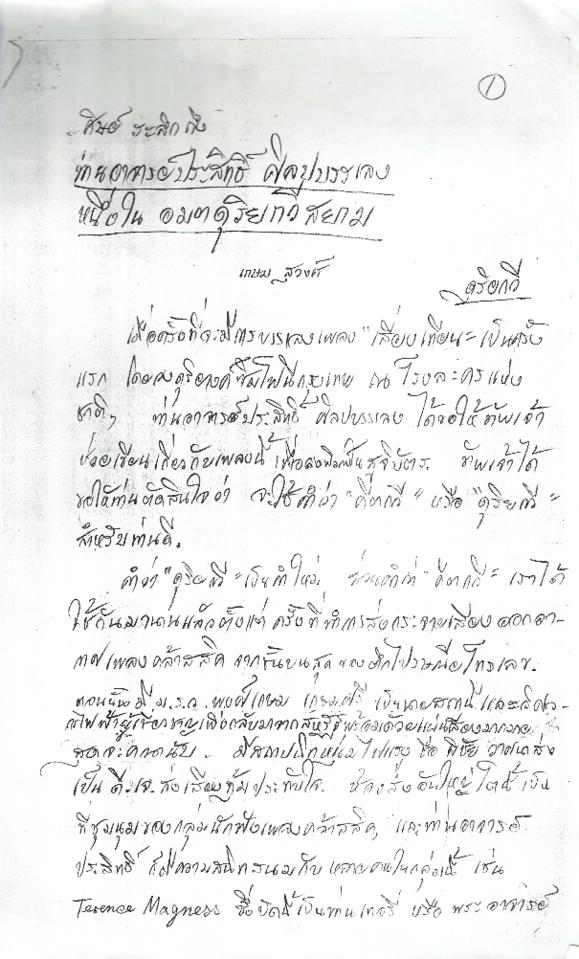 ①
ศิษย์ ระลึกถึง
ท่านอาจารย์ประสิทธิ์ ศิลปบรรเลง
หนึ่งใน อมตดุริยกวีสยาม
เกษม สวงค์
ดุริยกวี
เมื่อครั้งที่จะมีการบรรเลงเพลง "เสี่ยงเทียน" เป็นครั้ง
แรก โดยวงดุริยางค์ซิมโฟนีกรุงเทพ ณ โรงละครแห่ง
ชาติ, ท่านอาจารย์ประสิทธิ์ ศิลปบรรเลง ได้ขอให้ข้าพเจ้า
ช่วยเขียนเกี่ยวกับเพลงนี้ เพื่อลงพิมพ์ในสูจิบัตร. ข้าพเจ้าได้
ขอให้ท่านตัดสินใจว่า จะใช้คำว่า "คีตกวี" หรือ "ดุริยกวี"
สำหรับท่านดี.
คำว่า "ดุริยกวี" เป็นคำใหม่ ส่วนคำว่า "คีตกวี" เราได้
ใช้กันมานานแล้วตั้งแต่ ครั้งที่ทำการส่งกระจายเสียง ออกอา-
กาศเพลงคล้าสสิค จากชั้นบนสุด ของตึกไปรษณีย์โทรเลข.
ตอนนั้น มี ม.ร.ว. พงศ์เกษม เกษมศรี เป็นนายสถานี และวิศว-
กรไฟฟ้าผู้เชี่ยวชาญเพิ่งกลับมาจากสหรัฐ พร้อมด้วยแผ่นเสียงมากมาย
สุดจะคาดนับ. มีสถาปนิกหนุ่มไฟแรง ชื่อ พิชัย วาศนาส่ง
เป็น ดี.เจ. ส่งเสียงทุ้มประทับใจ. ห้องส่งอันใหญ่โตนี้ เป็น
ที่ชุมนุมของกลุ่มนักฟังเพลงคล้าสสิค, และท่านอาจารย์
ประสิทธิ์ ก็มีความสนิทสนมกับ หลายคนในกลุ่มนี้ เช่น
Terence Magness ซึ่งบัดนี้เป็นท่านเทอรี่ หรือ พระอาจารย์